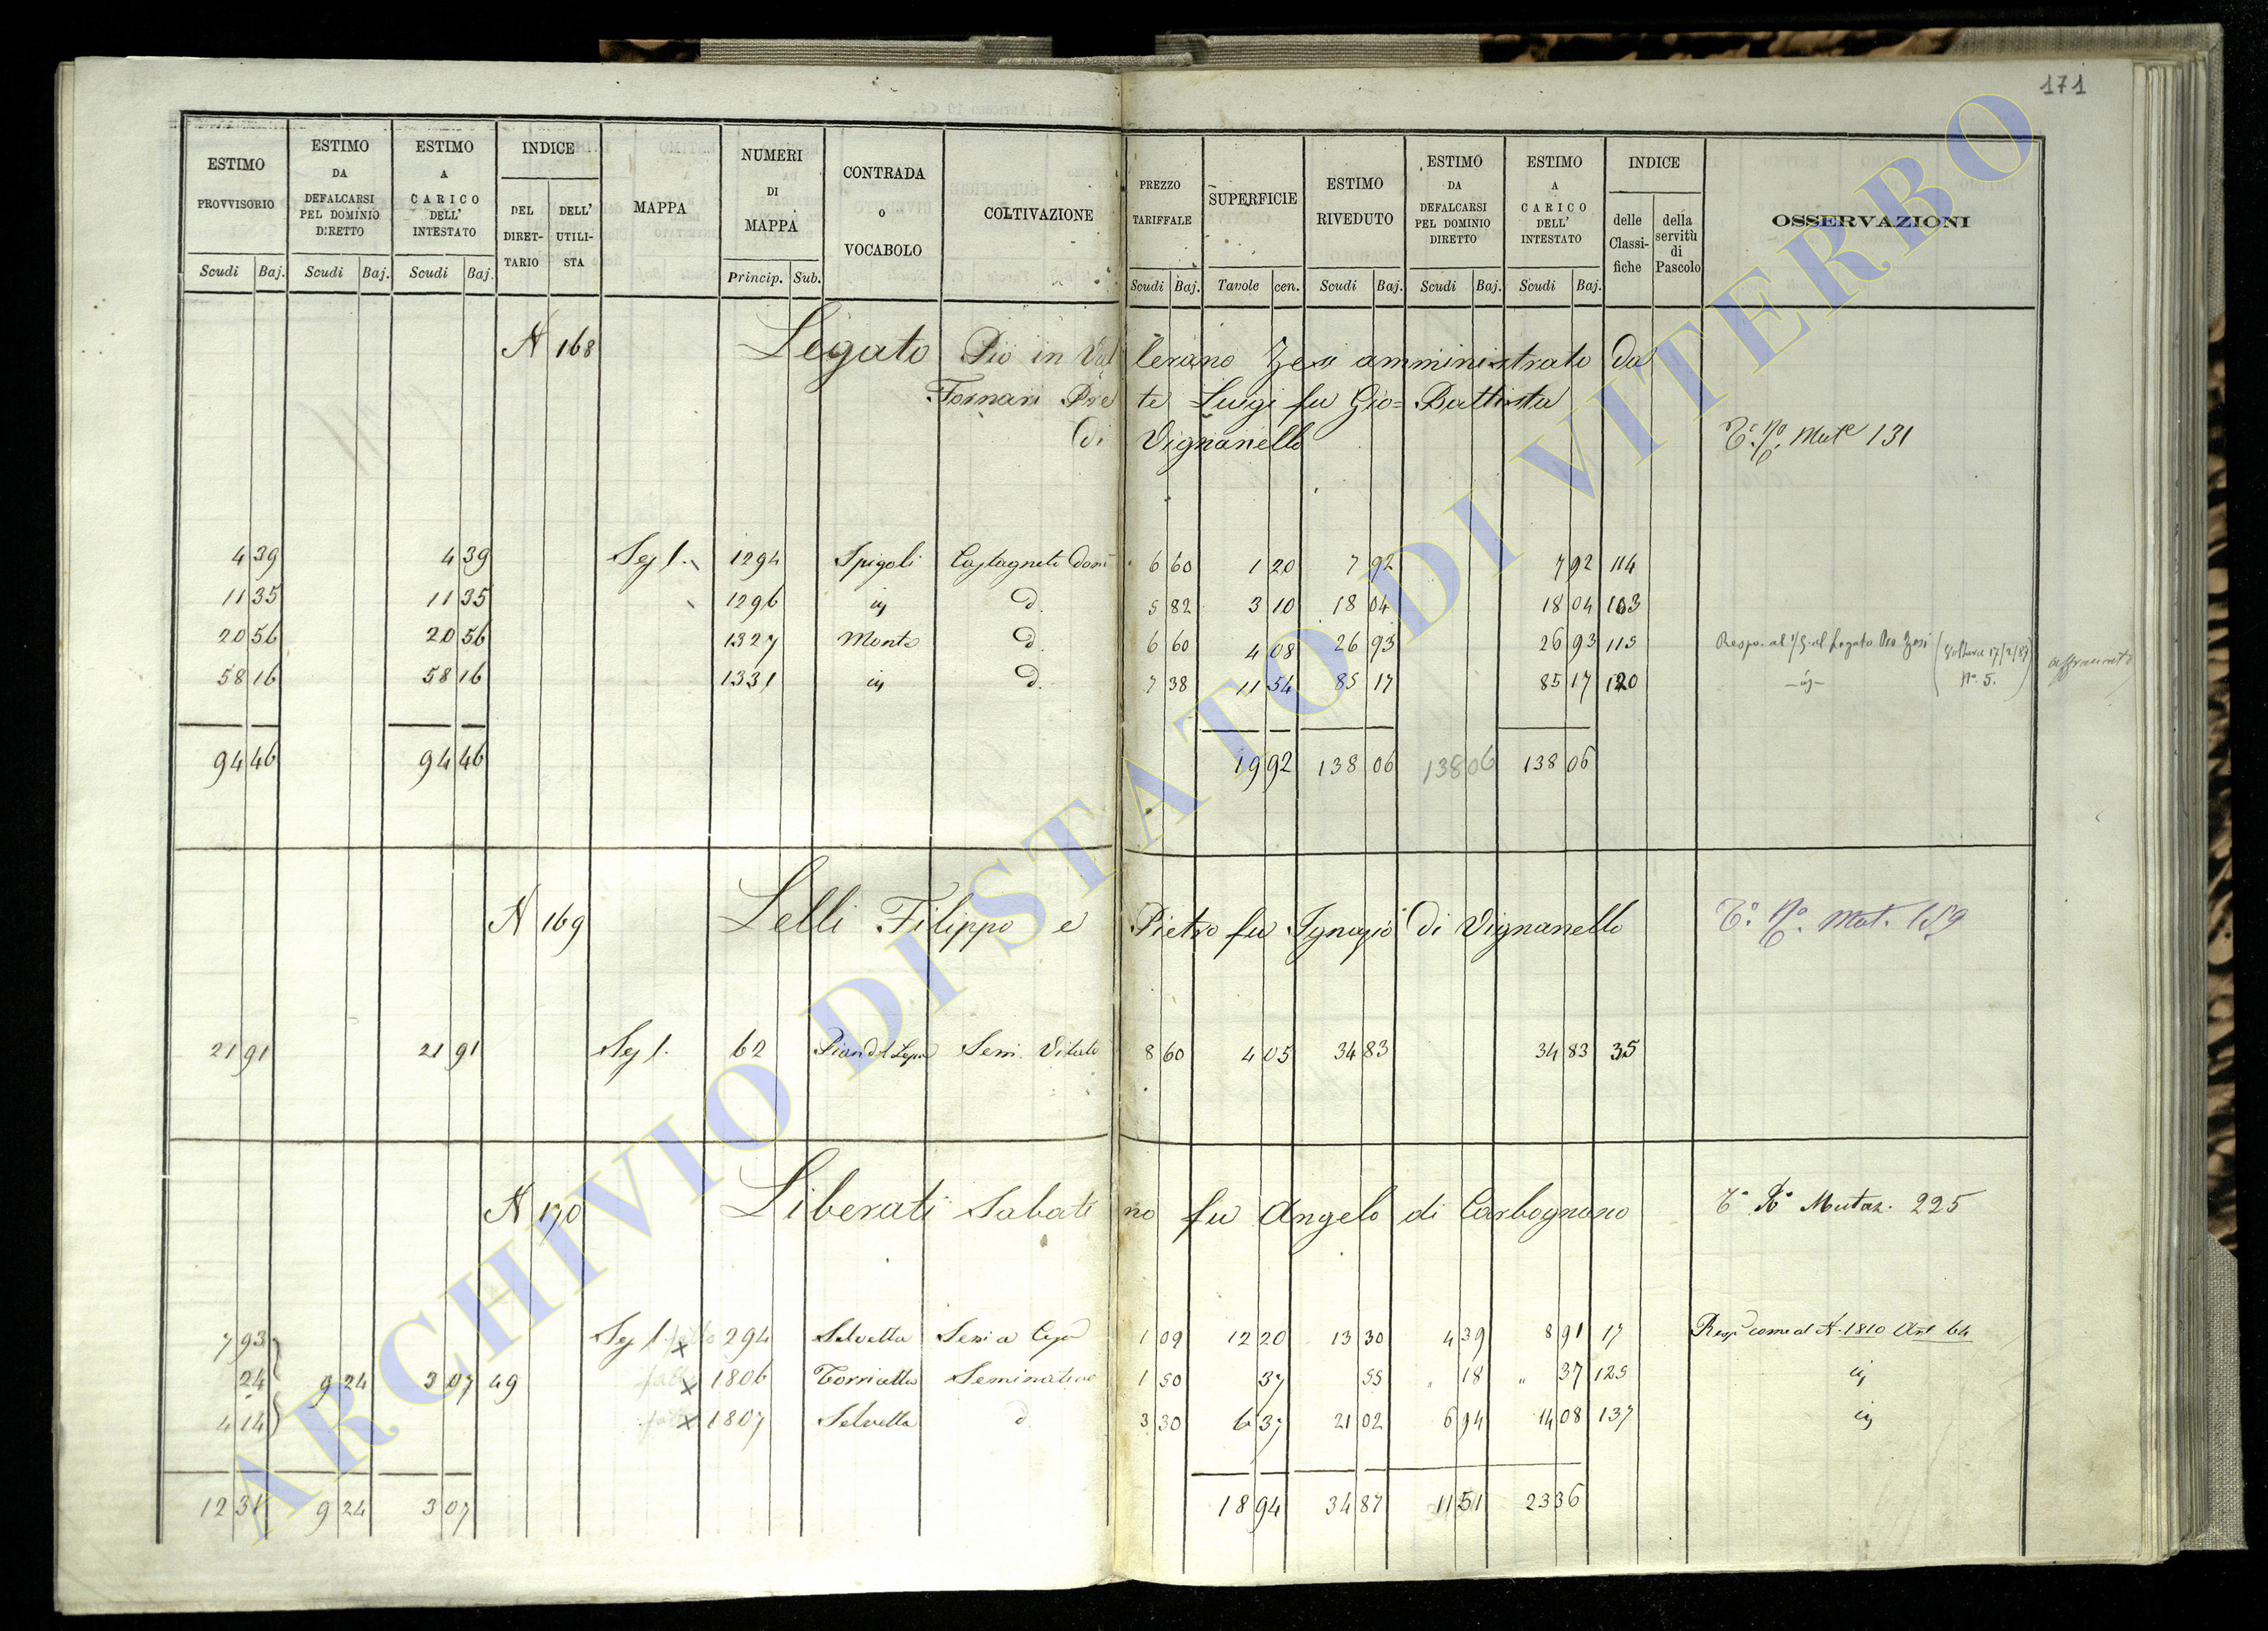 171
ESTIMO PROVVISORIO Scudi Baj.
ESTIMO DA DEFALCARSI PEL DOMINIO DIRETTO Scudi Baj.
ESTIMO A CARICO DELL' INTESTATO Scudi Baj.
INDICE DEL DIRETTARIO DELL' UTILISTA
MAPPA
NUMERI DI MAPPA Princip. Sub.
CONTRADA O VOCABOLO
COLTIVAZIONE
PREZZO TARIFFALE Scudi Baj.
SUPERFICIE Tavole cen.
ESTIMO RIVEDUTO Scudi Baj.
ESTIMO DA DEFALCARSI PEL DOMINIO DIRETTO Scudi Baj.
ESTIMO A CARICO DELL' INTESTATO Scudi Baj.
INDICE delle Classifiche della servitù di Pascolo
OSSERVAZIONI
N 168 Legato Pio in Vallerano Zesi amministrato da
Fornari Prete Luigi fu Gio= Battista
di Vignanello
Mut 131
4 39 4 39 Sez 1. 1294 Spigoli Castagneto Dom 6 60 1 20 7 92 7 92 114
11 35 11 35 1296 id. 5 82 3 10 18 04 18 04 103
20 56 20 56 1327 Monte d. 6 60 4 08 26 93 26 93 115 Respo. al Legato Pio Zesi
58 16 58 16 1331 d. 7 38 11 54 85 17 85 17 120 N° 5.
94 46 94 46 19 92 138 06 138 06 138 06
N 169 Lelli Filippo e Pietro fu Ignazio di Vignanello Mut. 159
21 91 21 91 Sez 1. 62 Semi. Vitato 8 60 4 05 34 83 34 83 35
N 170 Liberati Sabatino fu Angelo di Carbognano Mutaz. 225
7 93 Sez 1 fatto x 294 Selvetta 1 09 12 20 13 30 4 39 8 91 17 Resp. come al N. 1810 Art 64
24 9 24 3 07 49 fatto x 1806 Torricella Seminativo 1 50 37 55 " 18 " 37 125 id
4 14 fatto x 1807 Selvetta d. 3 30 6 37 21 02 6 94 14 08 137 id
12 31 9 24 3 07 18 94 34 87 11 51 23 36
ARCHIVIO DI STATO DI VITERBO